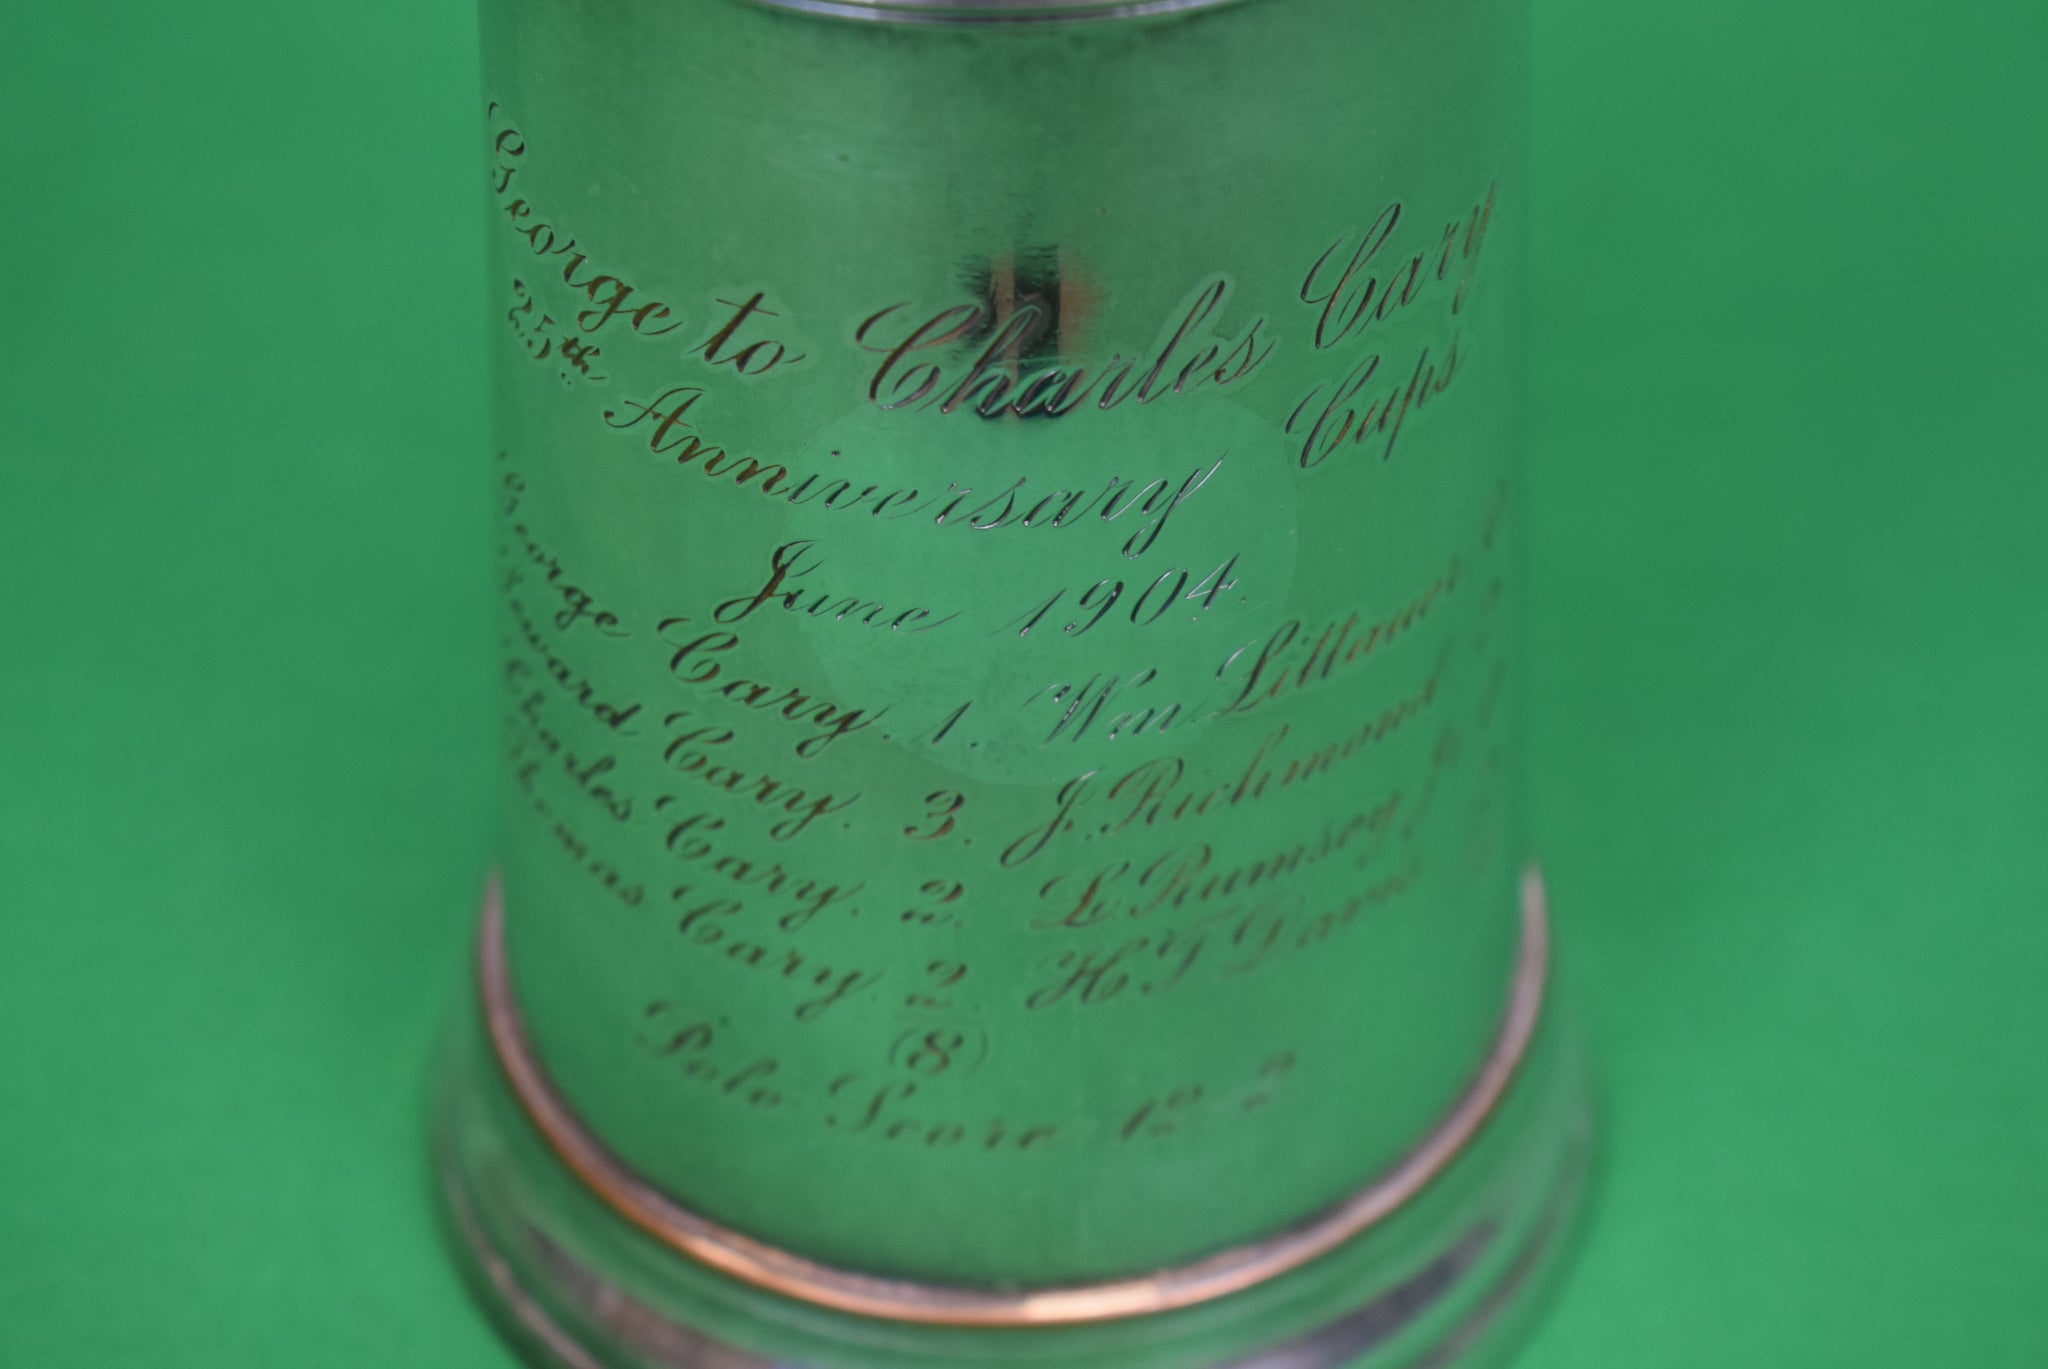 George to Charles Cary
25th Anniversary Cups
June 1904.
George Cary. 1. Wm Littauer
Seward Cary. 3. J. Richmond
Charles Cary. 2. L. Rumsey Jr
Thomas Cary. 2. H T Davis
(8)
Polo Score 12-2